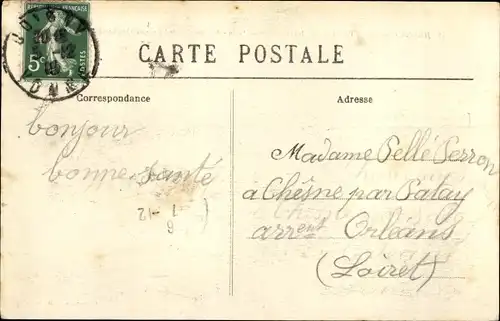 RÉPUBLIQUE FRANÇAISE
5c POSTES
CARTE POSTALE
Correspondance
Adresse
bonjour
bonne santé
Madame Pellé Perron
à Chêsne par Patay
arrent Orléans
(Loiret)